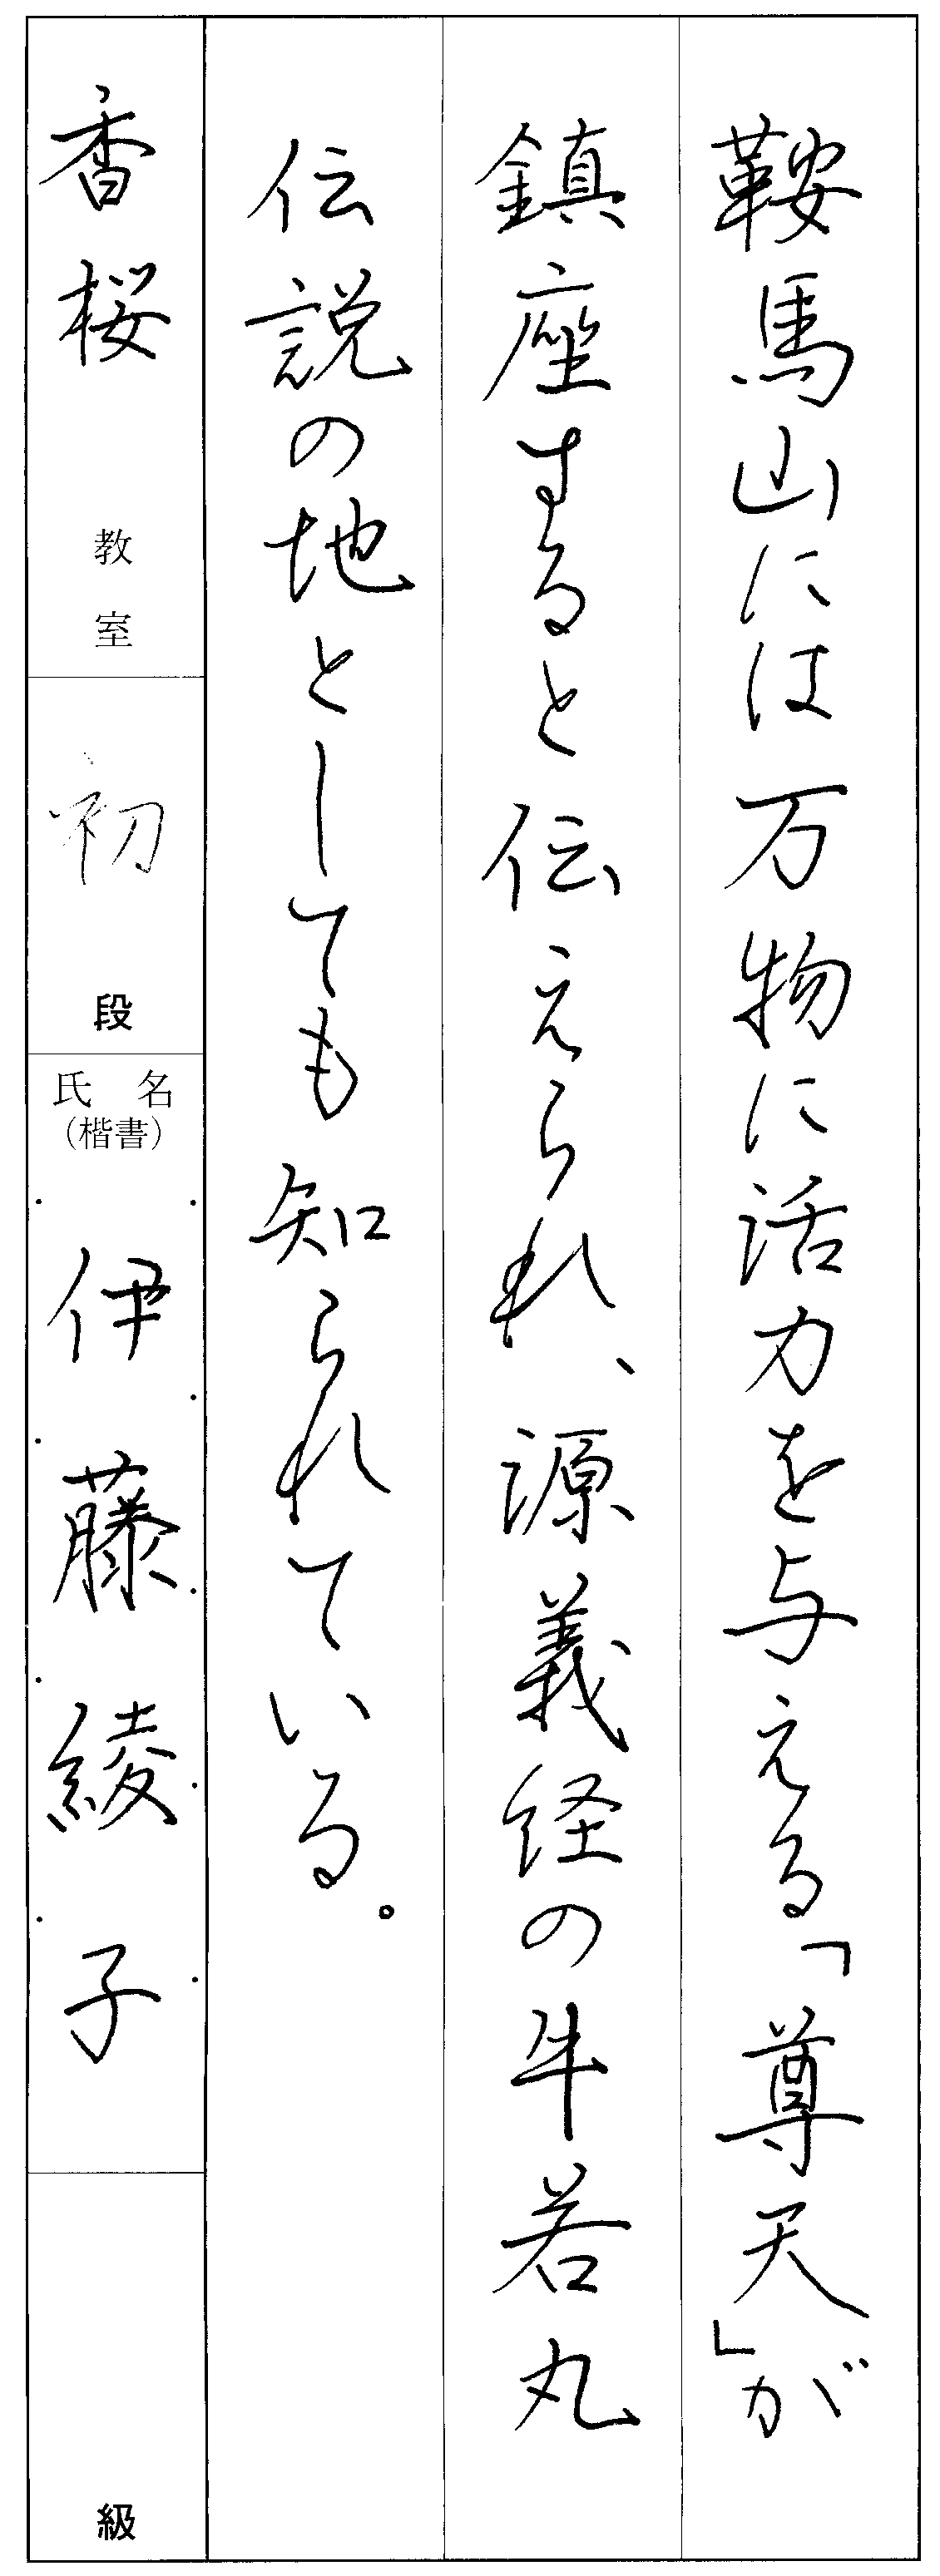 鞍馬山には万物に活力を与える「尊天」が
鎮座すると伝えられ、源義経の牛若丸
伝説の地としても知られている。
香桜 教室
初 段
氏名
(楷書)
伊藤綾子
級